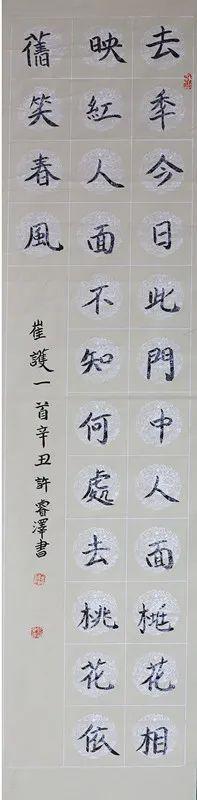 去秊今日此門中人面桃花相
映紅人面不知何處去桃花依
舊笑春風
崔護一首辛丑許睿澤書